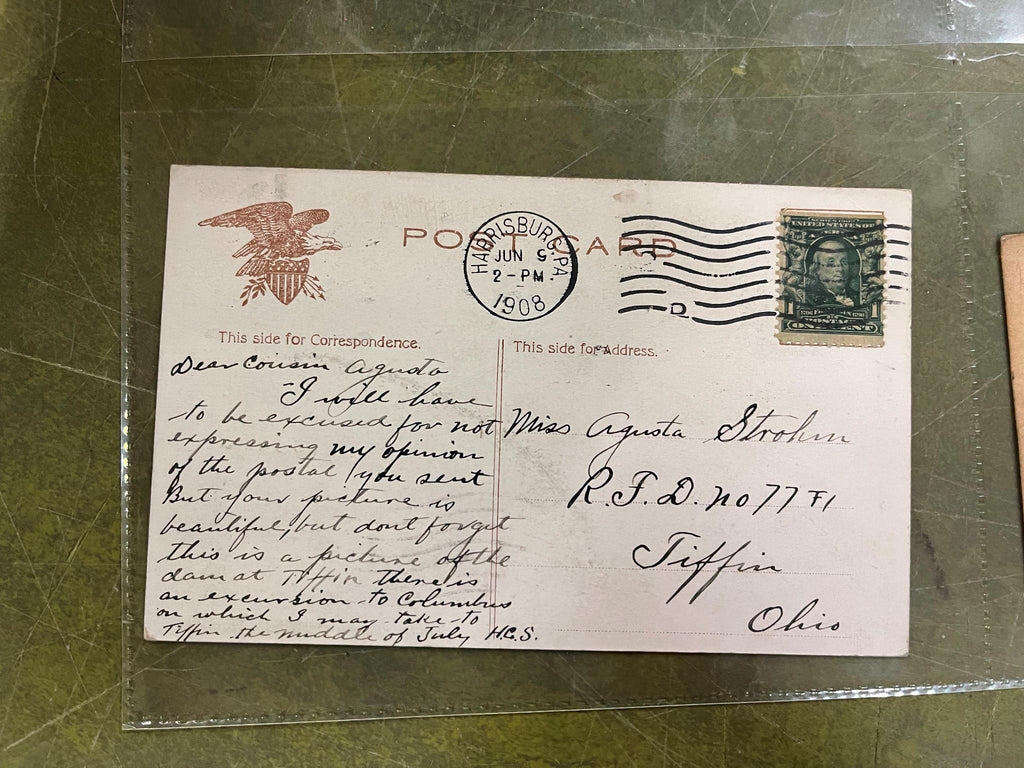 POST CARD
HARRISBURG, PA.
JUN 9
2 - PM
1908
D
SERIES 1902
UNITED STATES OF
FRANKLIN
POSTAGE
1 ONE CENT 1
This side for Correspondence.
This side for Address.
Dear Cousin Agusta
I will have
to be excused for not
expressing my opinion
of the postal you sent
But your picture is
beautiful, but dont forget
this is a picture of the
dam at Tiffin there is
an excursion to Columbus
on which I may take to
Tiffin the middle of July H.C.S.
Miss Agusta Strohm
R.F.D. no 77
Tiffin
Ohio